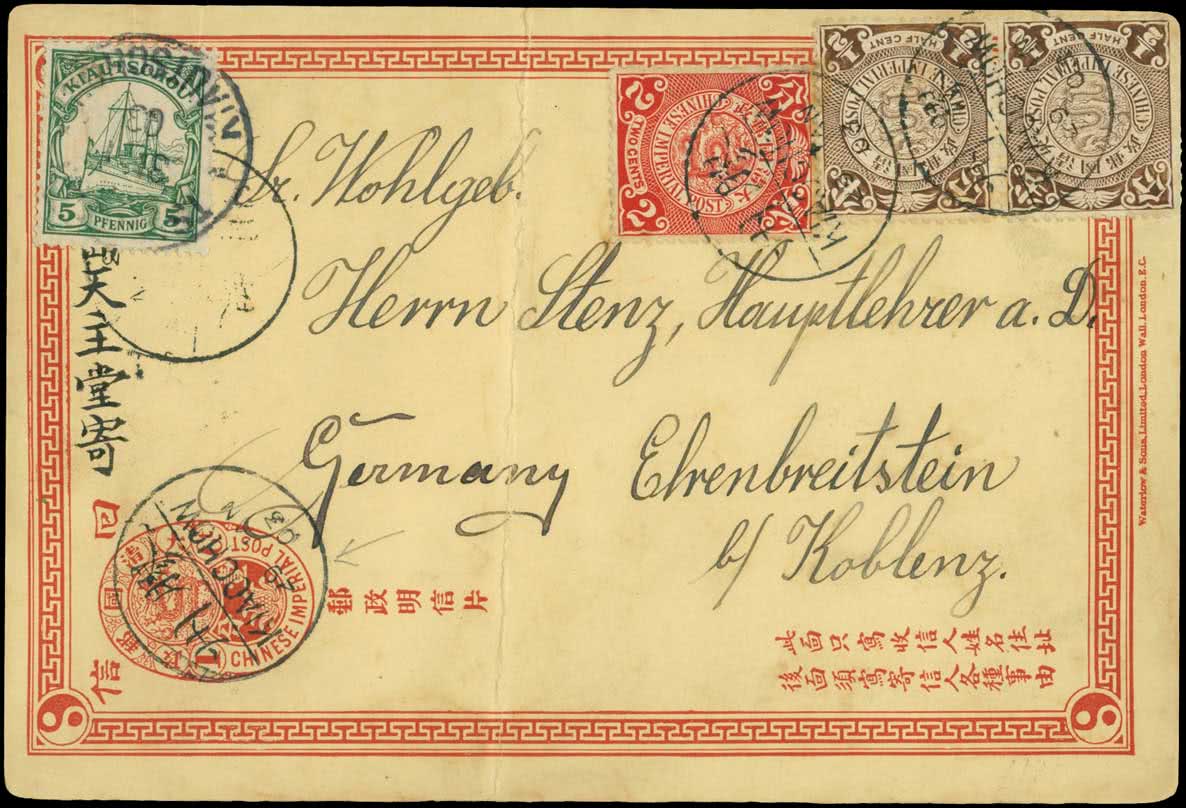 KIAUTSCHOU
5 PFENNIG 5
CHINESE IMPERIAL POST
TWO CENTS
2 2
CHINESE IMPERIAL POST
HALF CENT
½ ½
CHINESE IMPERIAL POST
HALF CENT
½ ½
Sr. Wohlgeb.
Herrn Stenz, Hauptlehrer a. D.
Germany Ehrenbreitstein
b/ Koblenz.
天主堂寄
回信
KIAOCHOW
CHINESE IMPERIAL POST
1
郵政明信片
此面只寫收信人姓名住址
後面須寫寄信人各種事由
Waterlow & Sons, Limited, London Wall, London, E.C.